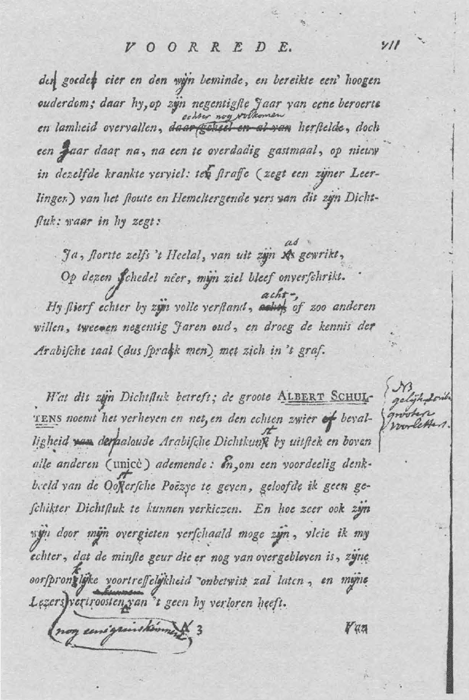 VOORREDE. VII
den goeden cier en den wijn beminde, en bereikte een' hoogen
ouderdom; daar hy, op zijn negentigste Jaar van eene beroerte
echter nog volkomen
en lamheid overvallen, daar geheel en al van herstelde, doch
een Jaar daar na, na een te overdadig gastmaal, op nieuw
in dezelfde krankte verviel: ter straffe (zegt een zijner Leer-
lingen) van het stoute en Hemeltergende vers van dit zijn Dicht-
stuk: waar in hy zegt:
Ja, stortte zelfs 't Heelal, van uit zijn as gewrikt,
Op dezen Schedel néér, mijn ziel bleef onverschrikt.
acht-,
Hy stierf echter by zijn volle verstand, of zoo anderen
willen, tweeen negentig Jaren oud, en droeg de kennis der
Arabische taal (dus sprak men) met zich in 't graf.
Wat dit zijn Dichtstuk betreft; de groote ALBERT SCHUL-
TENS noemt het verheven en net, en den echten zwier of beval-
NB
ligheid van der paloude Arabische Dichtkunst by uitstek en boven
alle anderen (unicè) ademende: En, om een voordeelig denk-
beeld van de Oostersche Poëzye te geven, geloofde ik geen ge-
schikter Dichtstuk te kunnen verkiezen. En hoe zeer ook zijn
wijn door mijn overgieten verschaald moge zijn, vleie ik my
echter, dat de minste geur die er nog van overgebleven is, zijne
oorspronklijke voortreffelijkheid onbetwist zal laten, en mijne
Lezers vertroosten van 't geen hy verloren heeft.
3 Van